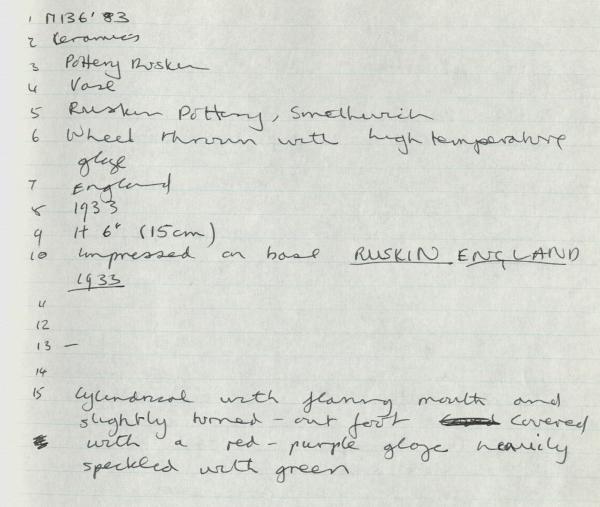 1 M136'83
2 Ceramics
3 Pottery Ruskin
4 Vase
5 Ruskin Pottery, Smethwich
6 Wheel thrown with high temperature
glaze
7 England
8 1933
9 Ht 6" (15cm)
10 Impressed on base RUSKIN ENGLAND
1933
11
12
13 —
14
15 Cylindrical with flaring mouth and
slightly turned-out foot covered
with a red-purple glaze heavily
speckled with green